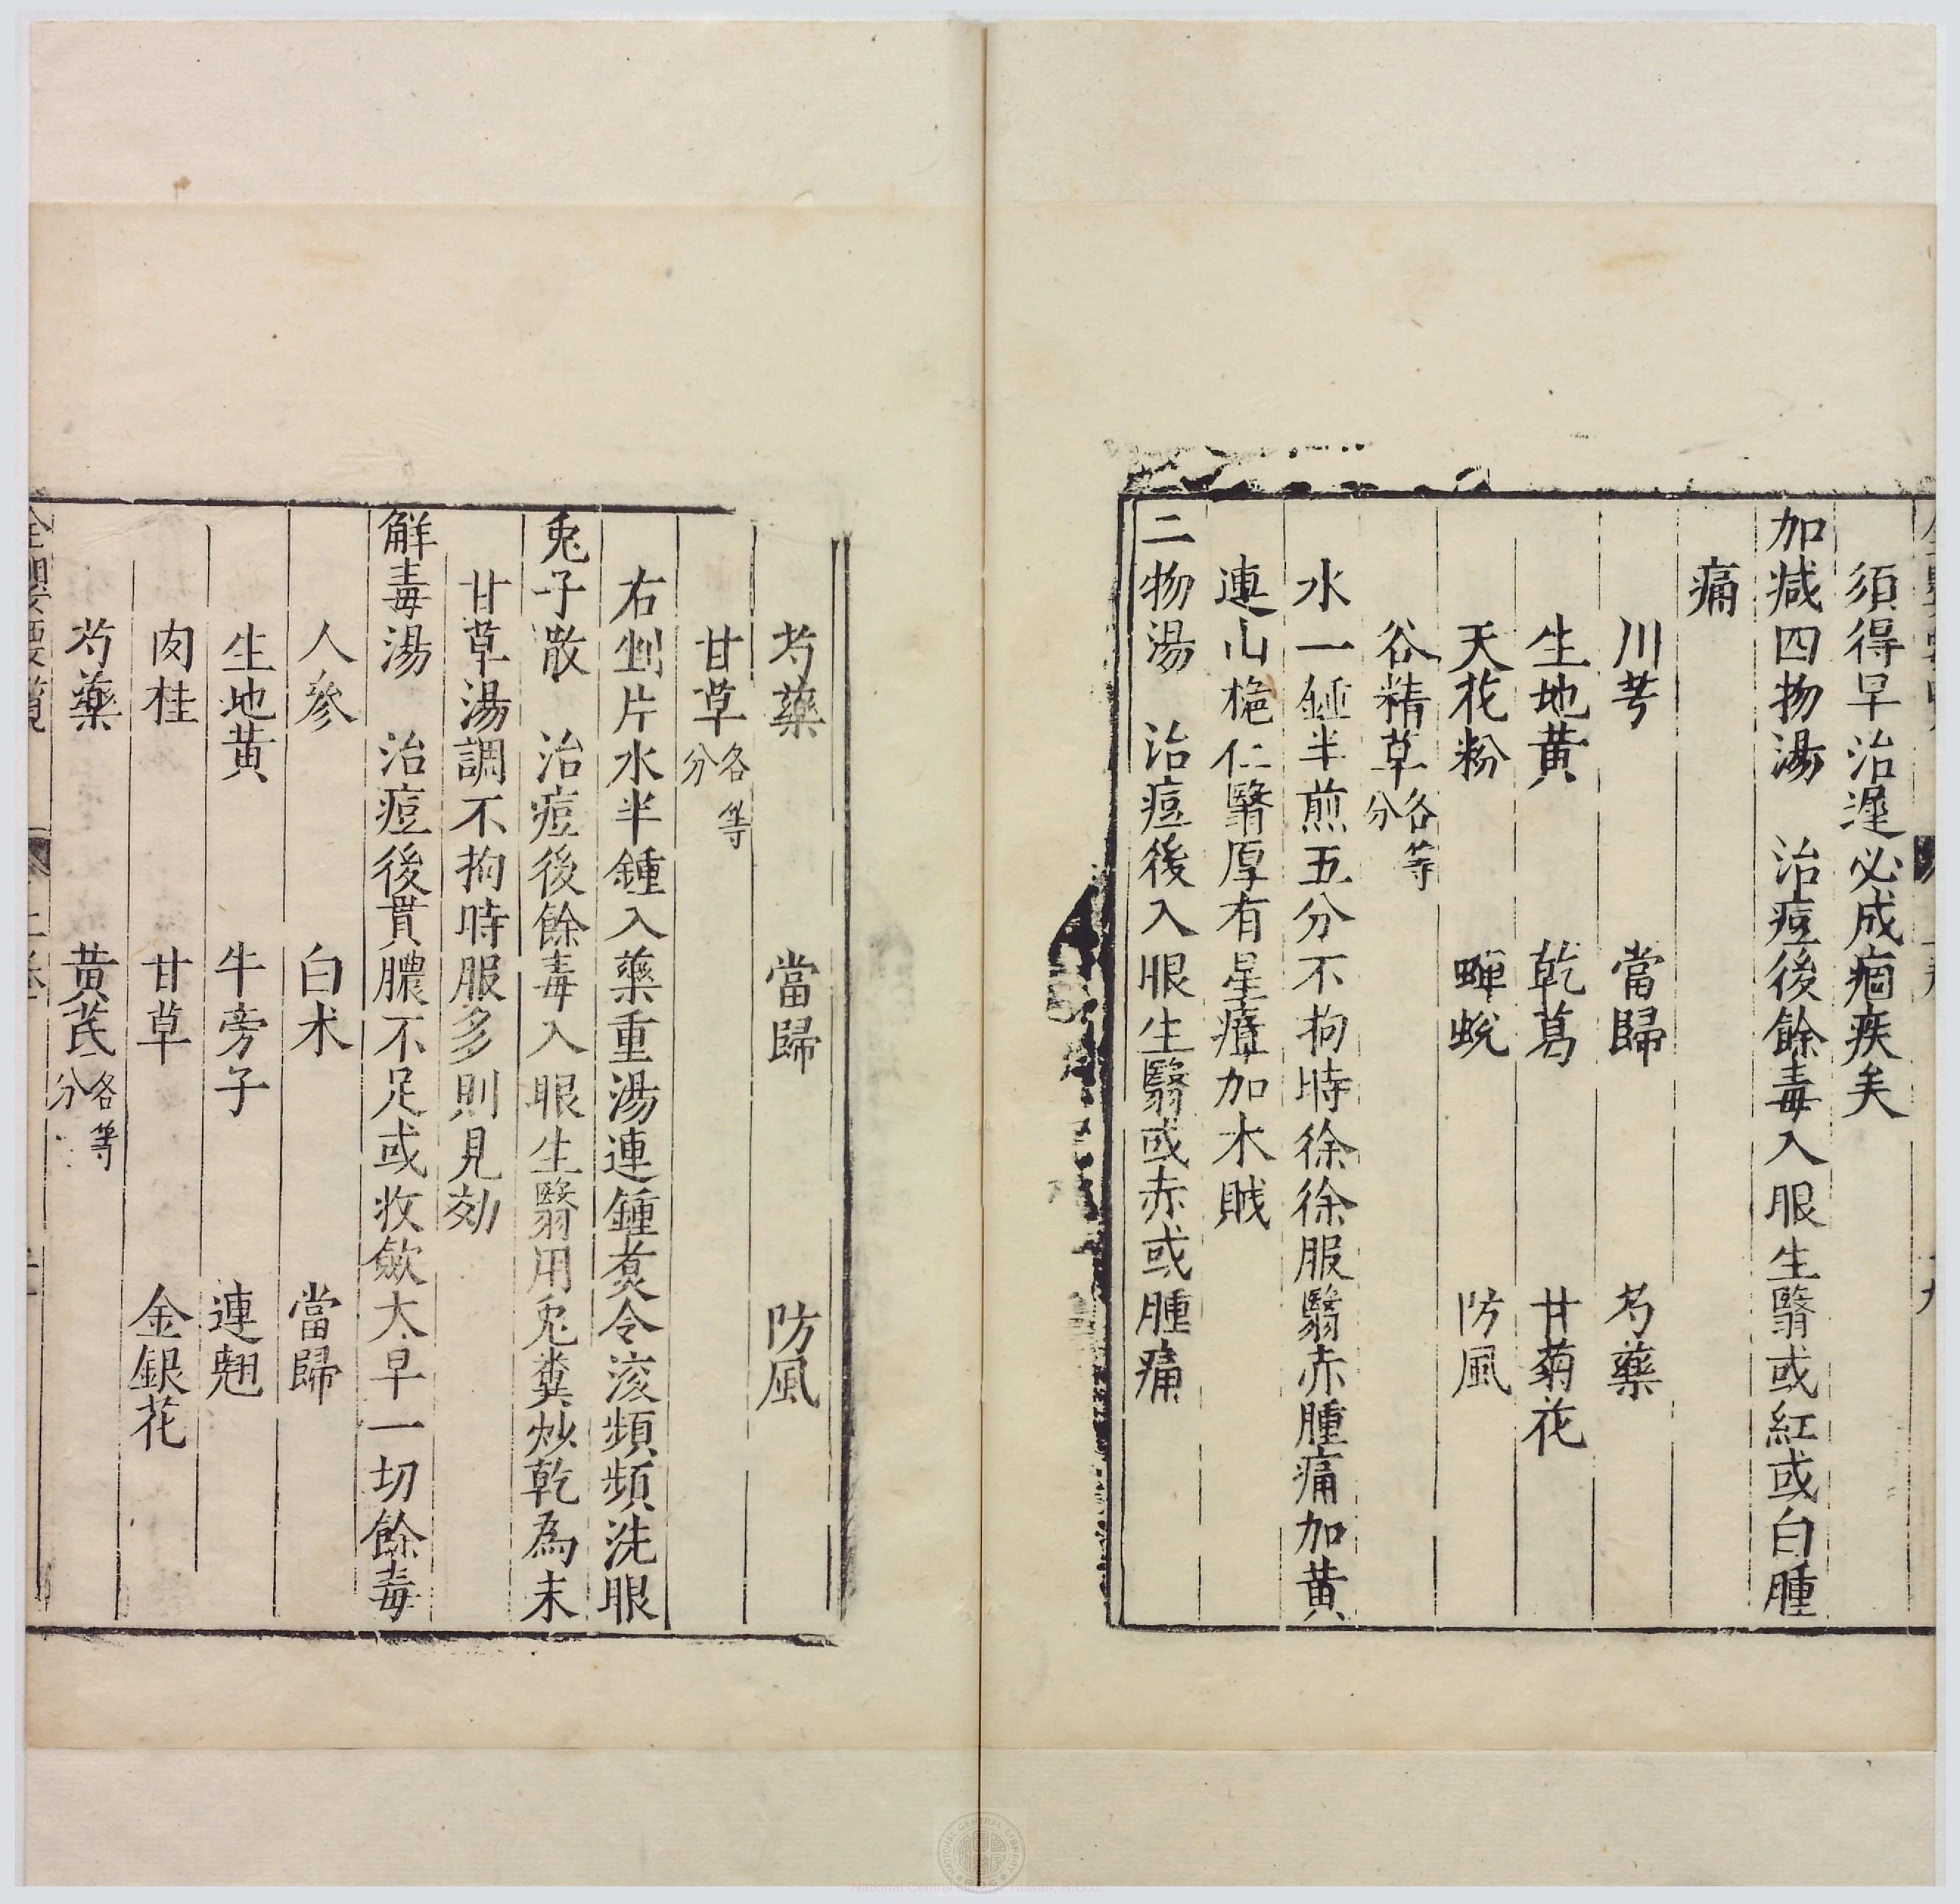 須得早治遲必成痼疾矣
加减四物湯　治痘後餘毒入眼生翳或紅或白腫
痛
川芎　當歸　芍藥
生地黄　乾葛　甘菊花
天花粉　蟬蛻　防風
谷精草各等分
水一鍾半煎五分不拘時徐徐服翳赤腫痛加黄
連山梔仁翳厚有星瘴加木賊
二物湯　治痘後入眼生翳或赤或腫痛
芍藥　當歸　防風
甘草各等分
右剉片水半鍾入藥重湯連鍾煑令滚頻頻洗眼
兎子散　治痘後餘毒入眼生翳用兎糞炒乾為末
甘草湯調不拘時服多則見効
解毒湯　治痘後貫膿不足或收斂太早一切餘毒
人參　白术　當歸
生地黄　牛旁子　連翹
肉桂　甘草　金銀花
芍藥　黄芪各等分